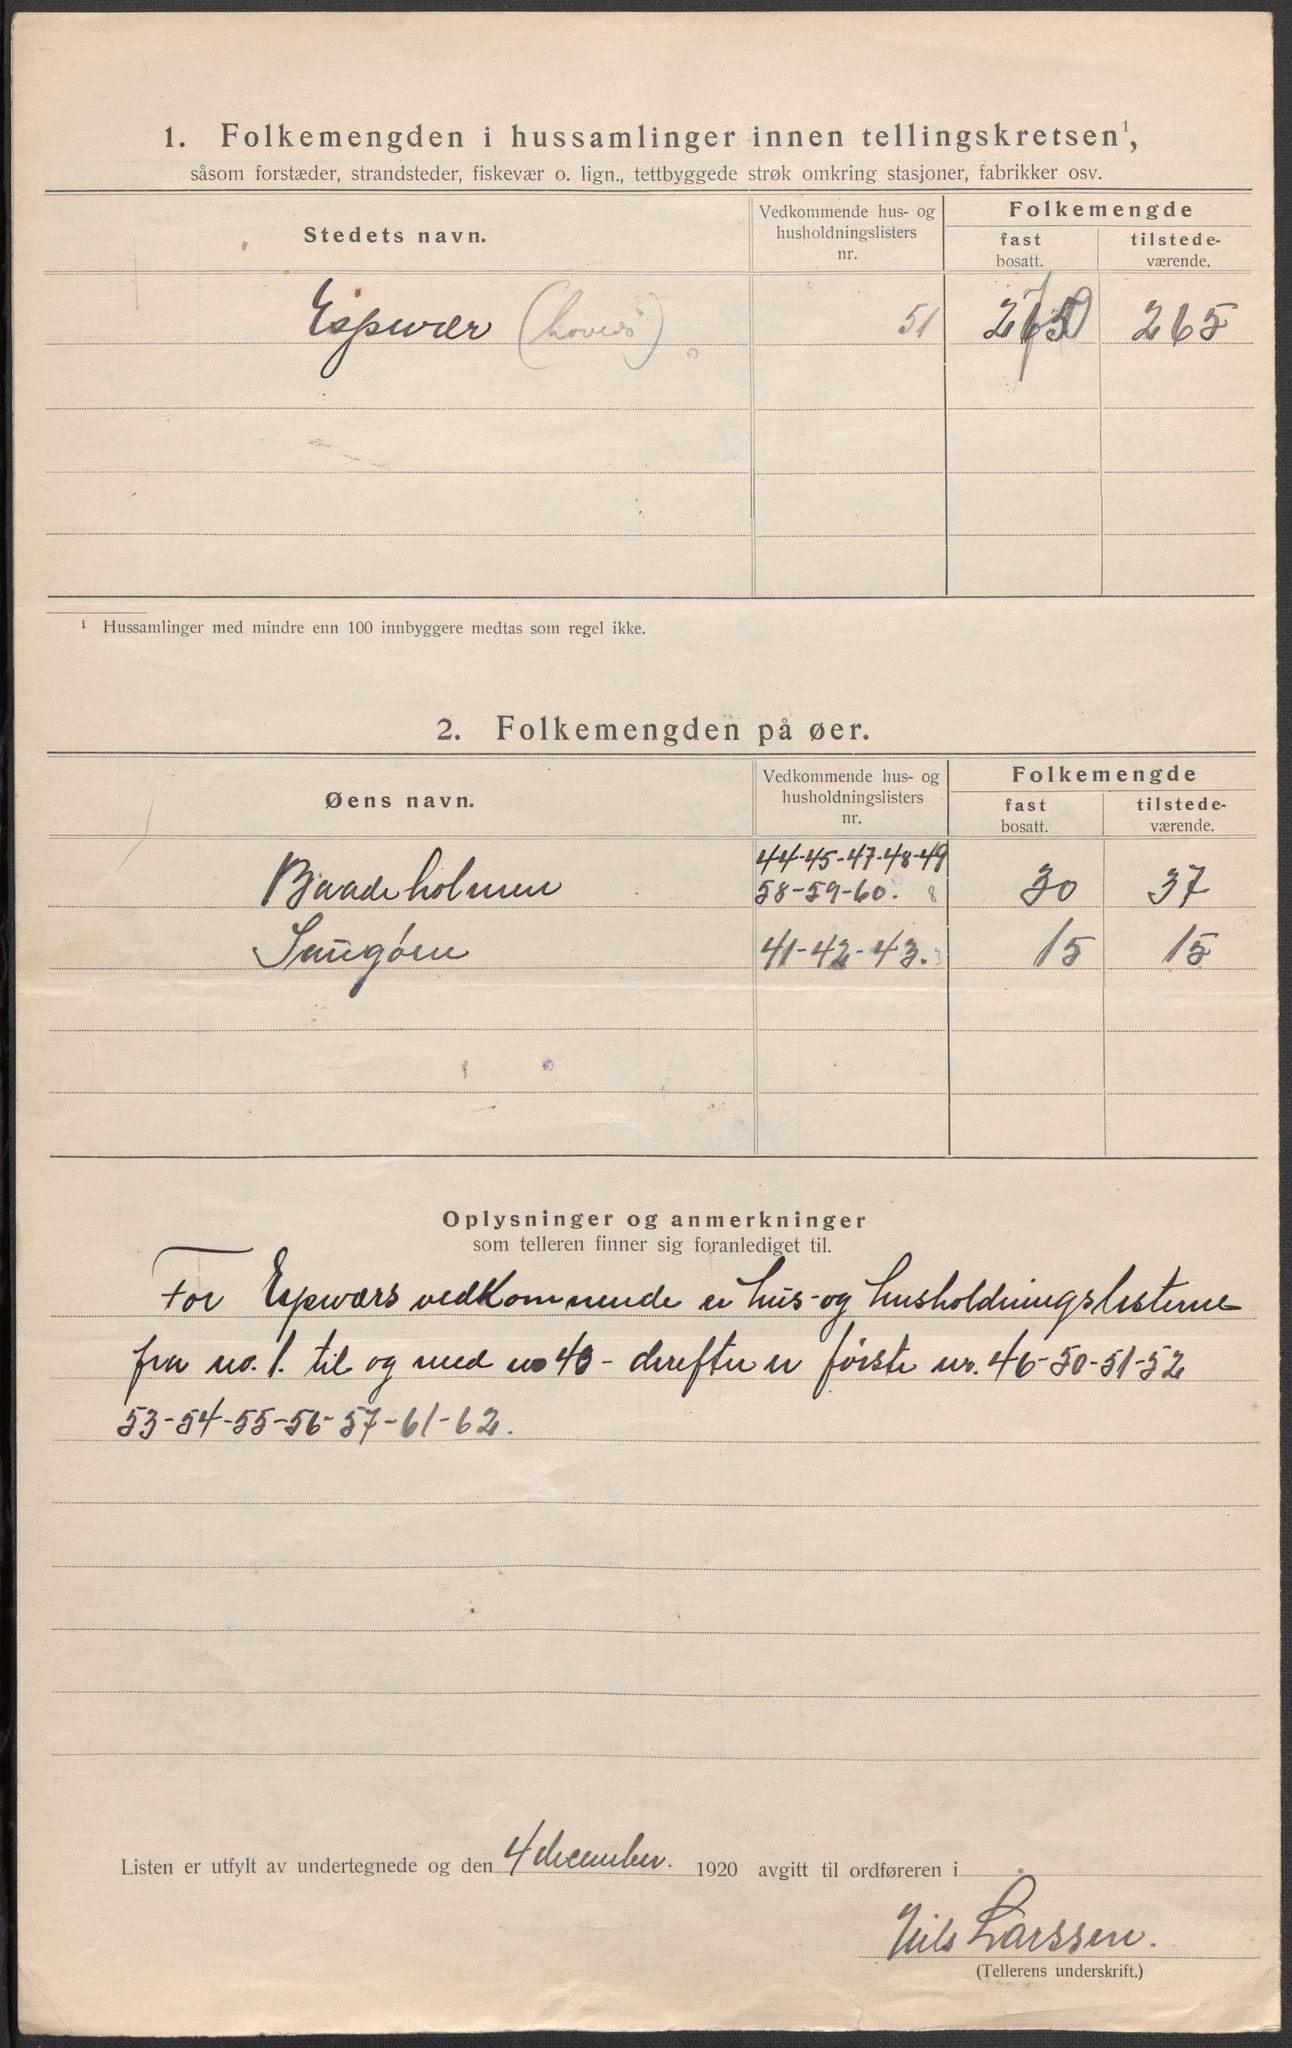 1. Folkemengden i hussamlinger innen tellingskretsen¹,
såsom forstæder, strandsteder, fiskevær o. lign., tettbyggede strøk omkring stasjoner, fabrikker osv.
Stedets navn. Vedkommende hus- og husholdningslisters nr. Folkemengde
fast bosatt. tilstedeværende.
Espevær 51 265
¹ Hussamlinger med mindre enn 100 innbyggere medtas som regel ikke.
2. Folkemengden på øer.
Øens navn. Vedkommende hus- og husholdningslisters nr. Folkemengde
fast bosatt. tilstedeværende.
44-45-47-48-49
Baadeholmen 58-59-60. 8 30 37
41-42-43. 3 15 15
Oplysninger og anmerkninger
som telleren finner sig foranlediget til.
For Espeværs vedkommende er hus- og husholdningslisterne
fra no. 1. til og med no 40 - derefter er følste nr. 46-50-51-52
53-54-55-56-57-61-62.
Listen er utfylt av undertegnede og den 4 december. 1920 avgitt til ordføreren i
Nils Larssen.
(Tellerens underskrift.)